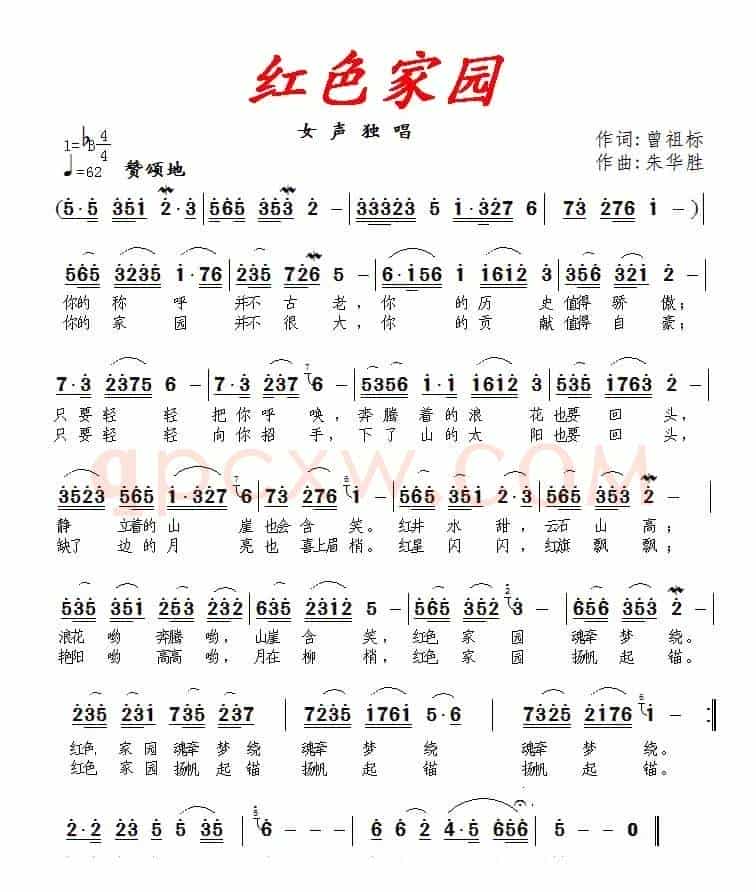 红色家园
女声独唱
1=♭B 4/4
作词:曾祖标
♩=62 赞颂地
作曲:朱华胜
(5·5 351 2·3 | 565 353 2 - | 33323 5 1·327 6 | 73 276 1 - )|
565 3235 1·76 | 235 726 5 - | 6·156 1 1612 3 | 565 356 321 2 |
你的 称 呼 并不 古 老,你 的 历 史 值得 骄 傲;
你的 家 园 并不 很 大,你 的 贡 献 值得 自 豪;
7·3 2375 6 - | 2·3 237 6 - | 5356 1·1 1612 3 | 535 1763 5 - |
只要 轻 轻 把 你 呼 唤,奔腾 着的 浪 花 也要 回 头,
只要 轻 轻 向 你 招 手,下了 山的 太 阳 也要 回 头,
3523 565 1·327 6 | 73 276 1 - | 565 351 2·3 | 565 353 2 - |
静 立着的 山 崖 也会 含 笑。 红井 水 甜, 云石 山 高;
缺了 边的 月 亮 也 喜上眉 梢。红星 闪 闪,红旗 飘 飘;
535 351 253 232 | 635 2312 5 - | 565 352 3 - | 656 353 2 - |
浪花 哟 奔腾 哟, 山崖 含 笑,红色 家 园 魂牵 梦 绕。
艳阳 哟 高高 哟, 月在 柳 梢,红色 家 园 扬帆 起 锚。
235 231 735 237 | 7235 1761 5·6 | 7325 2176 1 - :|
红色 家 园 魂牵 梦 绕 魂牵 梦 绕 魂牵 梦 绕。
红色 家 园 扬帆 起 锚 扬帆 起 锚 扬帆 起 锚。
2·2 235 5 35 | 6 - - - | 6 6 2 4·5 656 | 5 - - 0 ‖
qpcxw.com